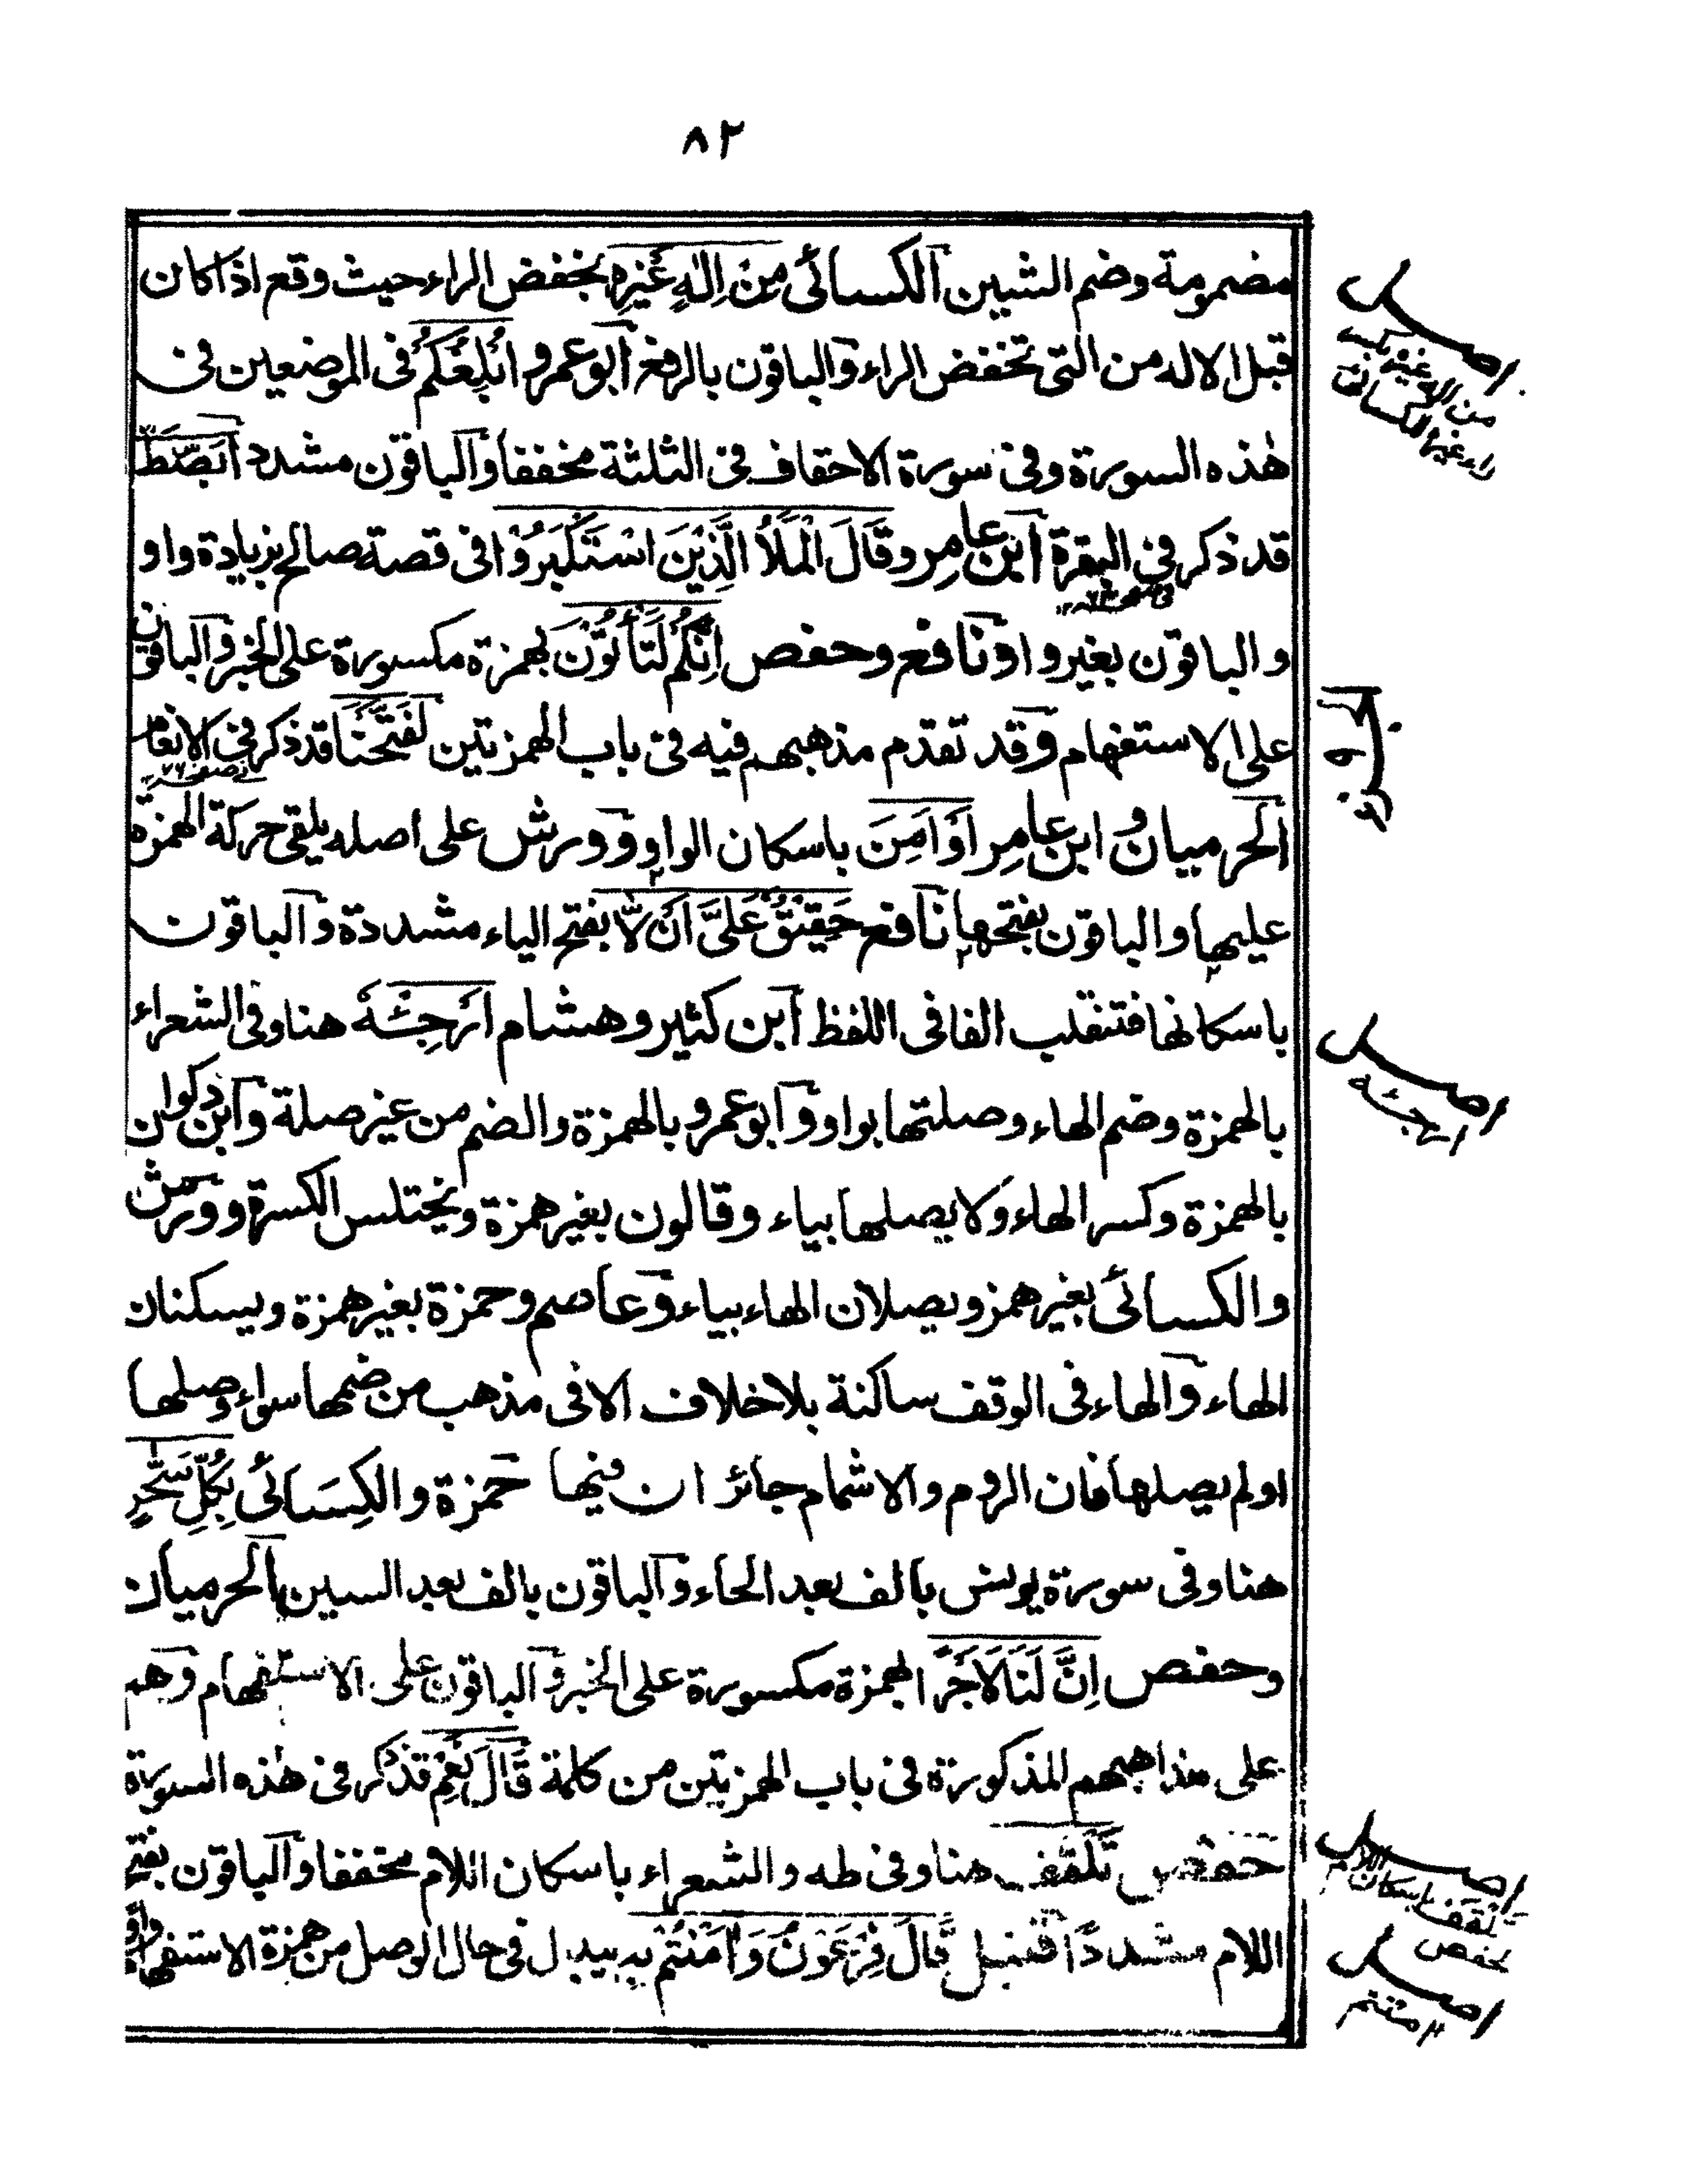 ٨٢
مضمومة وضم الشين الكسائى مِنْ اِلٰهٍ غَيْرِهٖ بخفض الراء حيث وقع اذا كان
قبل الاله من التى تخفض الراء والباقون بالرفع ابو عمرو اُبْلِغُكُمْ فى الموضعين فى
هٰذه السورة وفى سورة الاحقاف فى الثلثة مخففا والباقون مشددا بَصْطَةً
قد ذكر فى البقرة ابن عامر وقَالَ الْمَلَأُ الَّذِيْنَ اسْتَكْبَرُوْا فى قصة صالح بزيادة واو
والباقون بغير واو نافع وحفص اِنَّكُمْ لَتَأْتُوْنَ بهمزة مكسورة على الخبر والباقون
على الاستفهام وقد تقدم مذهبهم فيه فى باب الهمزتين لَفَتَحْنَا قد ذكر فى الانعام
الحرميان وابن عامر اَوْ اَمِنَ باسكان الواو وورش على اصله يلقى حركة الهمزة
عليها والباقون بفتحها نافع حَقِيْقٌ عَلَىَّ اَنْ لَّا بفتح الياء مشددة والباقون
باسكانها فتنقلب الفا فى اللفظ ابن كثير وهشام اَرْجِئْهُ هنا وفى الشعراء
بالهمزة وضم الهاء وصلتها بواو وابو عمرو بالهمزة والضم من غير صلة وابن ذكوان
بالهمزة وكسر الهاء ولا يصلها بياء وقالون بغير همزة ويختلس الكسرة وورش
والكسائى بغير همز ويصلان الهاء بياء وعاصم وحمزة بغير همزة ويسكنان
الهاء والهاء فى الوقف ساكنة بلا خلاف الا فى مذهب من ضمها سواء وصلها
او لم يصلها فان الروم والاشمام جائزان فيها حمزة والكِسَائى بِكُلِّ سَحَّرٍ
هنا وفى سورة يونس بالف بعد الحاء والباقون بالف بعد السين الحرميان
وحفص اِنَّ لَنَا لَاَجْرًا بهمزة مكسورة على الخبر والباقون على الاستفهام وهم
على مذاهبهم المذكورة فى باب الهمزتين من كلمة قَالَ نَعَمْ قد ذكر فى هٰذه السورة
حفص تَلْقَفُ هنا وفى طه والشعراء باسكان اللام مخففا والباقون بفتح
اللام مشددًا قنبل قَالَ فِرْعَوْنُ وَاٰمَنْتُمْ بِهٖ يبدل فى حال الوصل من همزة الاستفهام واوا
من اله غيره
ارجئه
تلقف باسكان اللام
لحفص
اٰمنتم